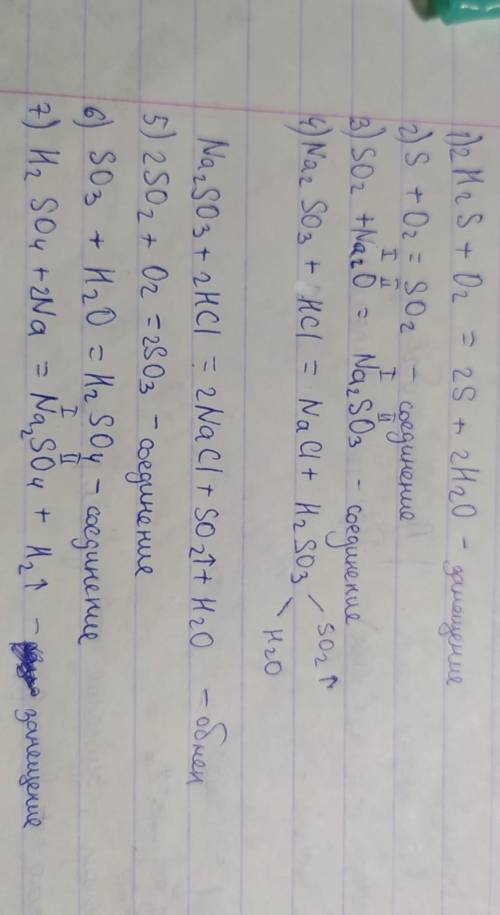 1) 2H₂S + O₂ = 2S + 2H₂O – замещение
2) S + O₂ = SO₂ – соединение
I II I II
3) SO₂ + Na₂O = Na₂SO₃ – соединение
4) Na₂SO₃ + HCl = NaCl + H₂SO₃
SO₂↑
H₂O
Na₂SO₃ + 2HCl = 2NaCl + SO₂↑ + H₂O – обмен
5) 2SO₂ + O₂ = 2SO₃ – соединение
6) SO₃ + H₂O = H₂SO₄ – соединение
I II
7) H₂SO₄ + 2Na = Na₂SO₄ + H₂↑ – замещение